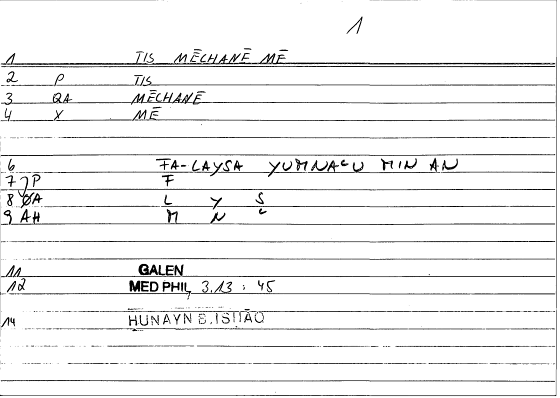 1
1 TIS MĒCHANĒ MĒ
2 P TIS
3 QA MĒCHANĒ
4 X MĒ
6 FA-LAYSA YUMNAʿU MIN AN
7 P F
8 QA L Y S
9 AH M N ʿ
11 GALEN
12 MED PHIL, 3.13 : 45
14 HUNAYN B. ISHAQ